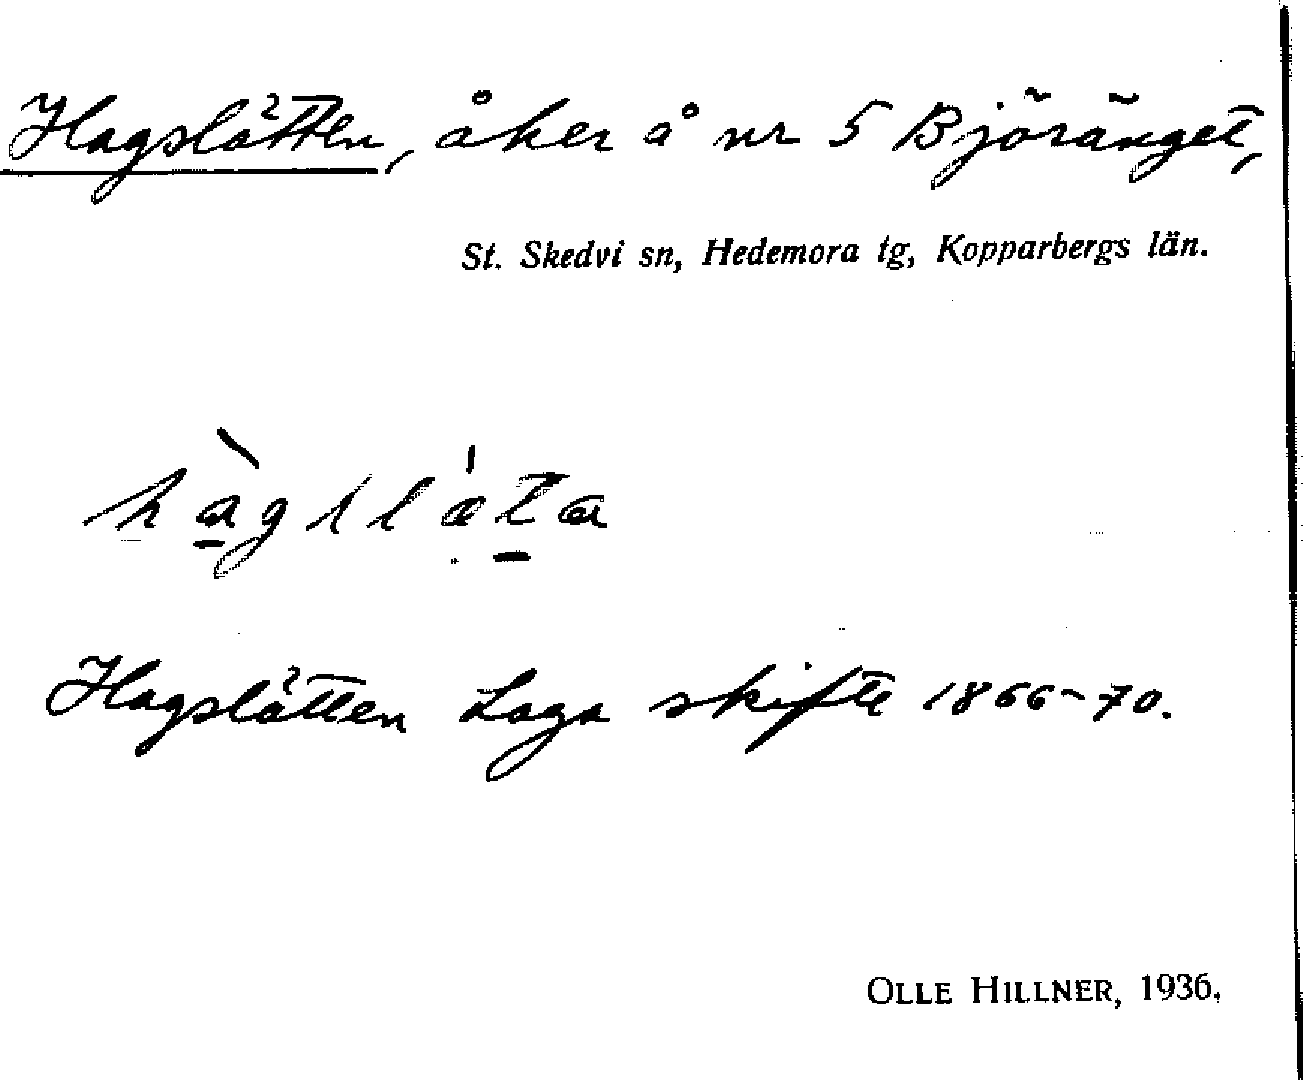 Hagslätten, åker å nr 5 Björänget,
St. Skedvi sn, Hedemora tg, Kopparbergs län.
Hagslätten Laga skifte 1866-70.
OLLE HILLNER, 1936.